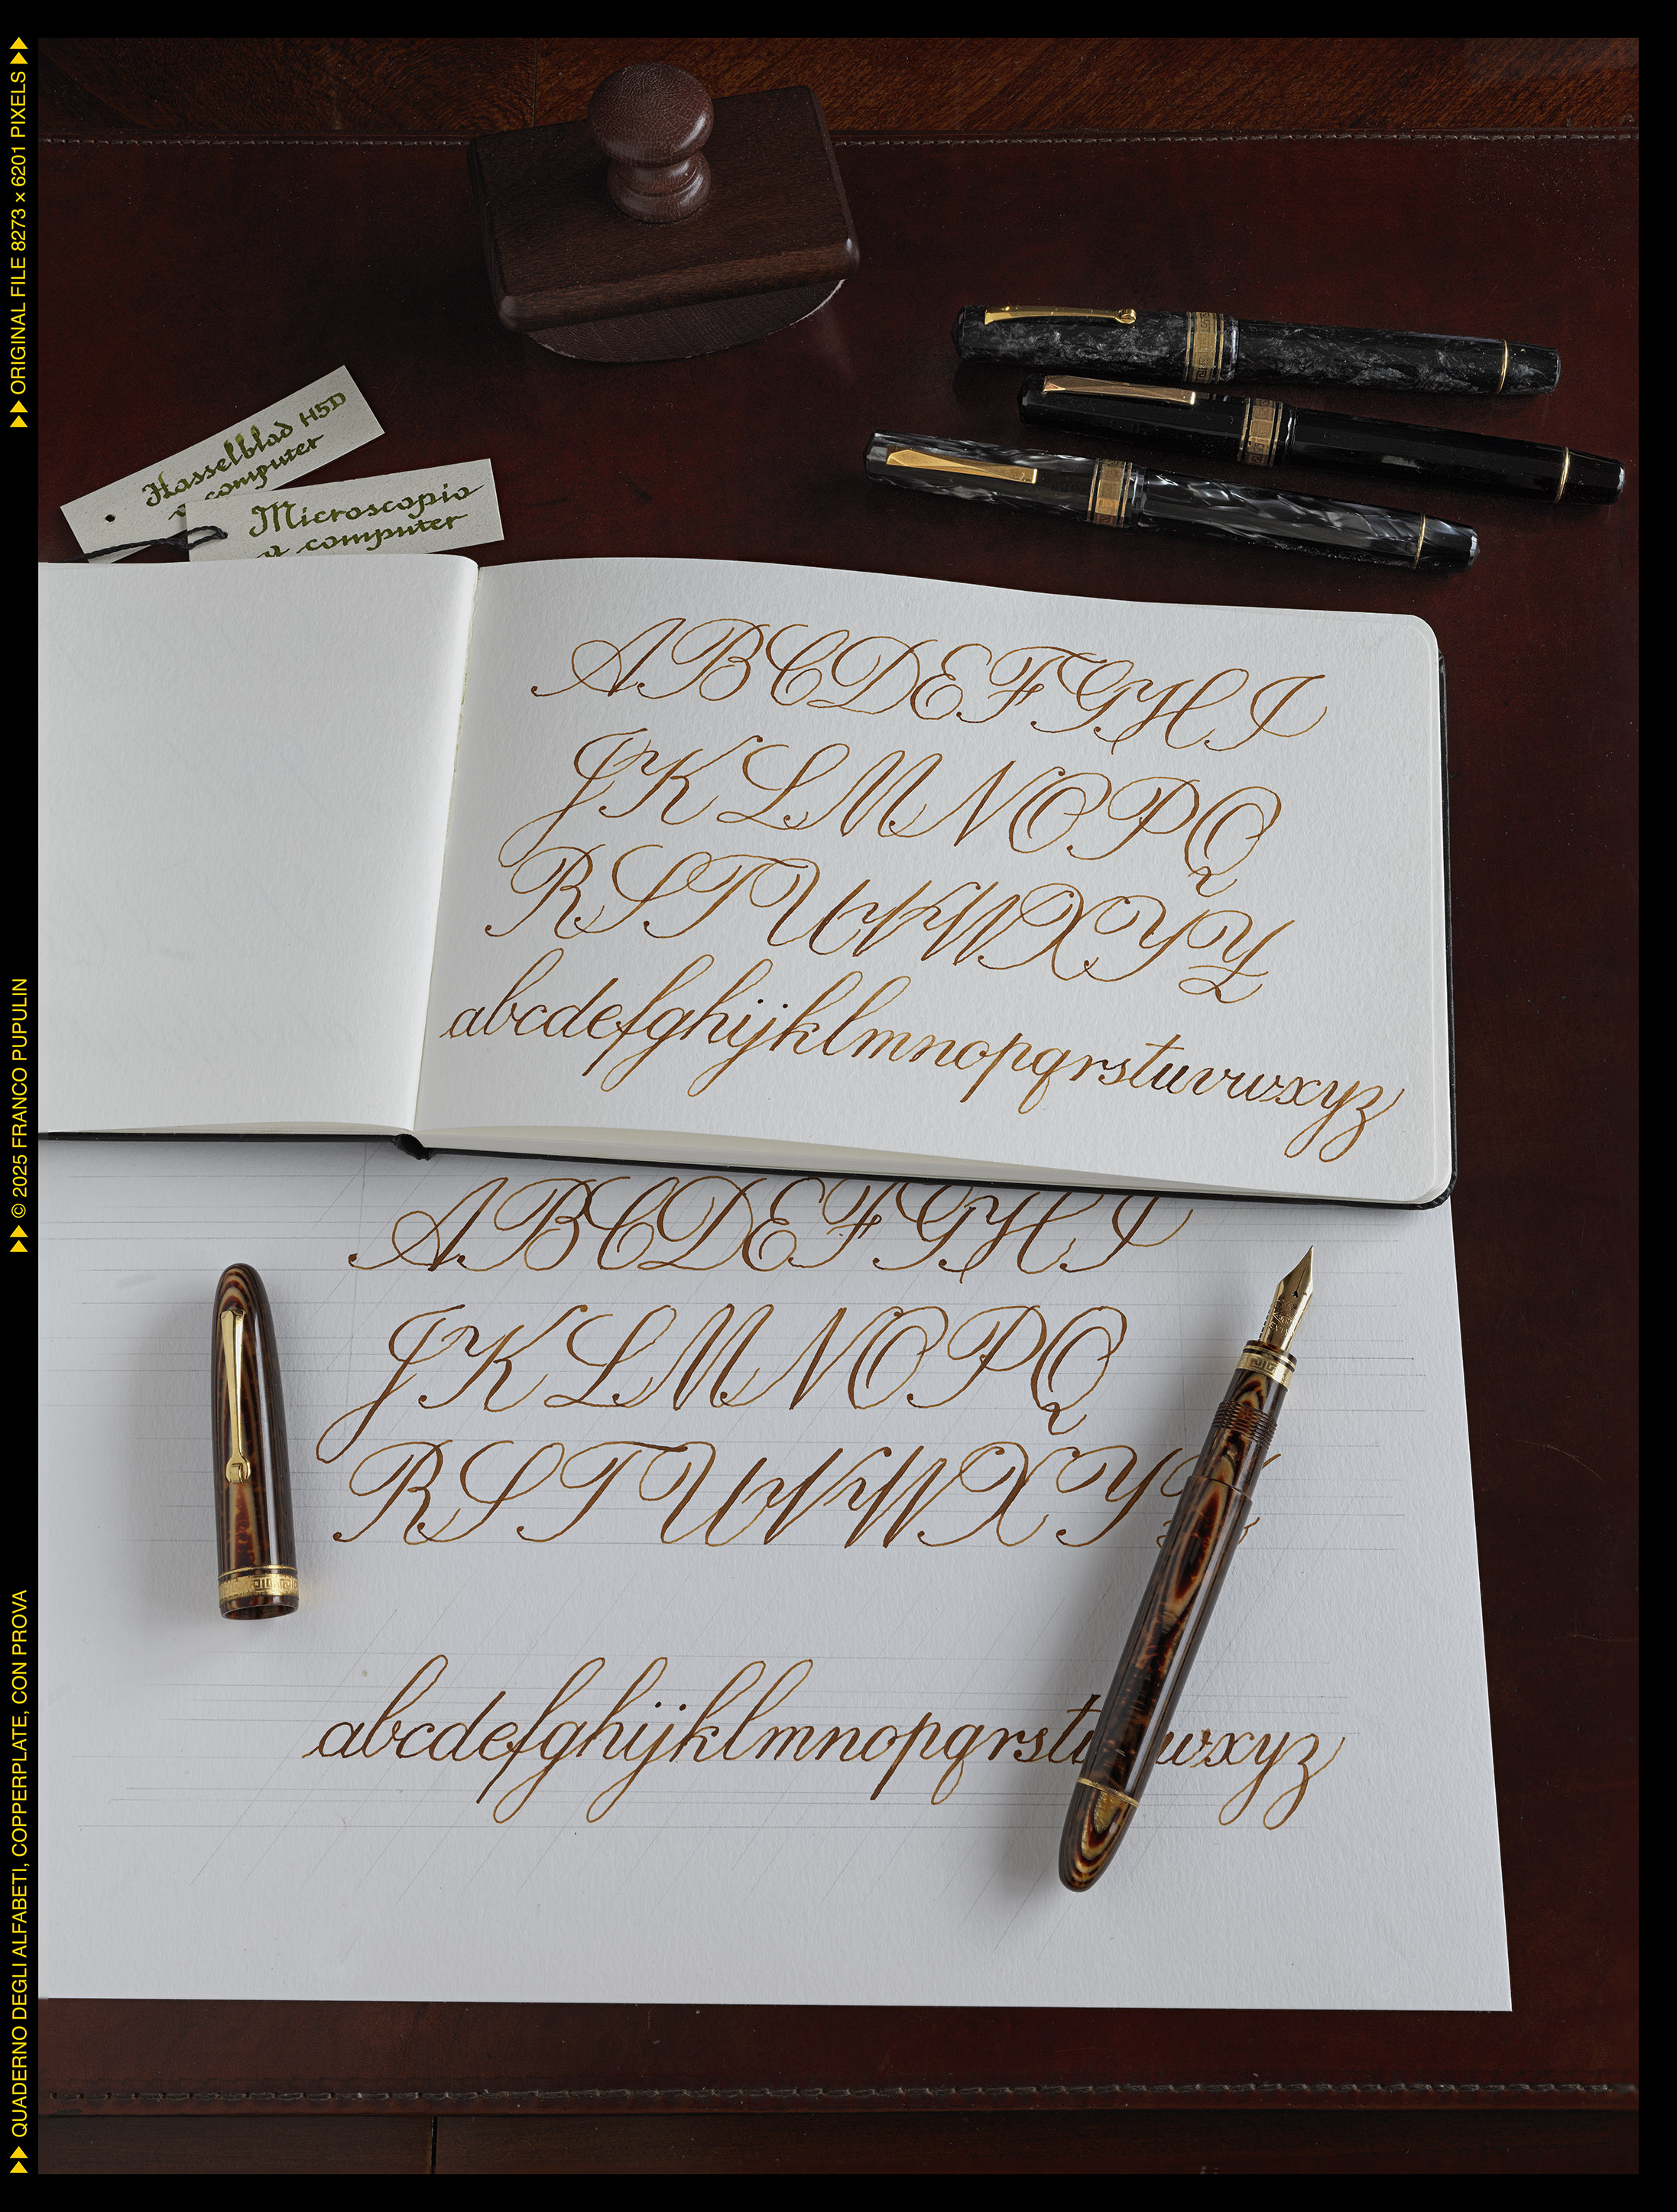 ▶▶ ORIGINAL FILE 8273 × 6201 PIXELS ▶▶
▶▶ © 2025 FRANCO PUPULIN
▶▶ QUADERNO DEGLI ALFABETI, COPPERPLATE, CON PROVA
Hasselblad H5D
computer
Microscopio
a computer
ABCDEFGHI
JKLMNOPQ
RSTUVWXYZ
abcdefghijklmnopqrstuvwxyz
ABCDEFGHI
JKLMNOPQ
RSTUVWXYZ
abcdefghijklmnopqrstu wxyz